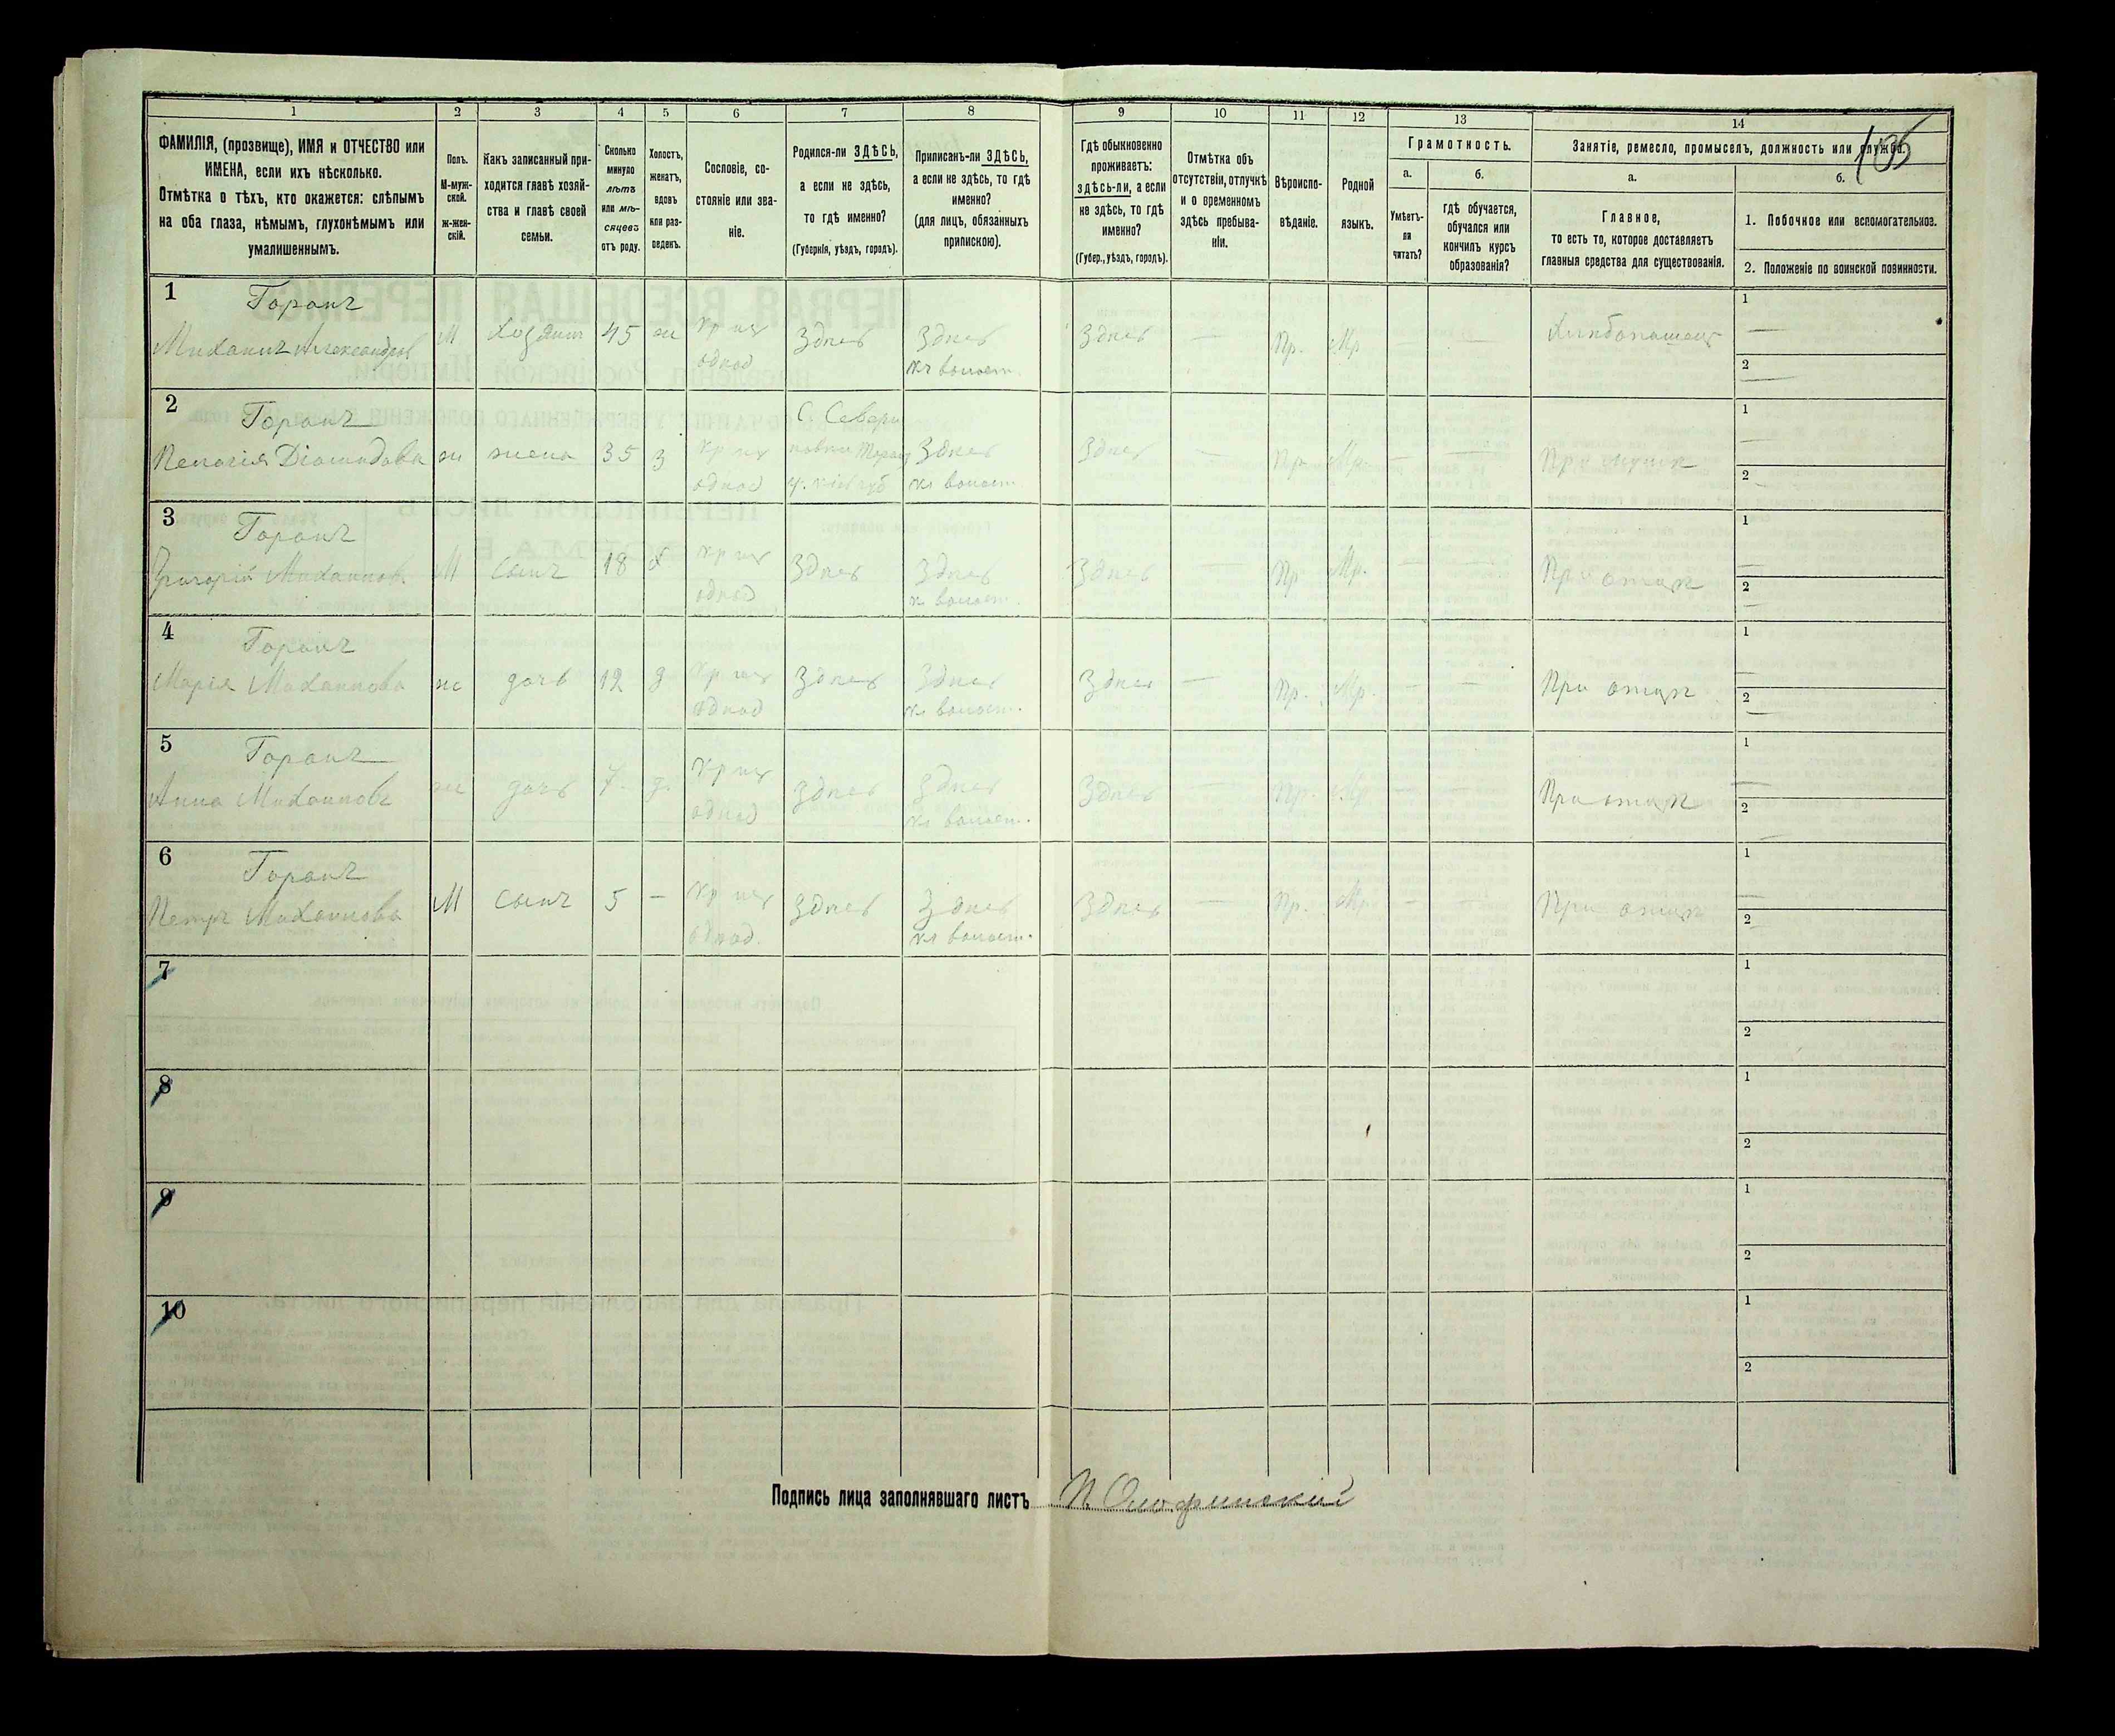 105
1 2 3 4 5 6 7 8 9 10 11 12 13 14
ФАМИЛІЯ, (прозвище), ИМЯ и ОТЧЕСТВО или
ИМЕНА, если ихъ нѣсколько.
Отмѣтка о тѣхъ, кто окажется: слѣпымъ
на оба глаза, нѣмымъ, глухонѣмымъ или
умалишеннымъ.
Полъ.
М-муж-
ской.
ж-жен-
скій.
Какъ записанный при-
ходится главѣ хозяй-
ства и главѣ своей
семьи.
Сколько
минуло
лѣтъ
или мѣ-
сяцевъ
отъ роду.
Холостъ,
женатъ,
вдовъ
или раз-
веденъ.
Сословіе, со-
стояніе или зва-
ніе.
Родился-ли ЗДѢСЬ,
а если не здѣсь,
то гдѣ именно?
(Губернія, уѣздъ, городъ).
Приписанъ-ли ЗДѢСЬ,
а если не здѣсь, то гдѣ
именно?
(для лицъ, обязанныхъ
припискою).
Гдѣ обыкновенно
проживаетъ:
здѣсь-ли, а если
не здѣсь, то гдѣ
именно?
(Губер., уѣздъ, городъ).
Отмѣтка объ
отсутствіи, отлучкѣ
и о временномъ
здѣсь пребыва-
ніи.
Вѣроиспо-
вѣданіе.
Родной
языкъ.
Грамотность.
а.
Умѣетъ-
ли
читать?
б.
гдѣ обучается,
обучался или
кончилъ курсъ
образованія?
Занятіе, ремесло, промыселъ, должность или служба.
а.
Главное,
то есть то, которое доставляетъ
главныя средства для существованія.
б.
1. Побочное или вспомогательное.
2. Положеніе по воинской повинности.
1 Горанъ
Михаилъ Александров М хозяинъ 45 ж кр изъ однод Здѣсь Здѣсь къ волост. Здѣсь — Пр. Мр — — Хлѣбопашецъ 1 — 2 —
2 Горанъ
Пелагія Діомидова ж жена 35 з кр изъ однод С. Севери Здѣсь къ волост. Здѣсь — Пр. Мр. — — При мужѣ 1 — 2 —
3 Горанъ
Григорій Михаилов. М сынъ 18 х кр изъ однод Здѣсь Здѣсь къ волост. Здѣсь — Пр Мр. — — При отцѣ 1 — 2 —
4 Горанъ
Марія Михаилова ж дочь 12 д кр изъ однод Здѣсь Здѣсь къ волост. Здѣсь — Пр. Мр. — — При отцѣ 1 — 2 —
5 Горанъ
Анна Михаилова ж дочь 7. д. кр изъ однод Здѣсь Здѣсь къ волост. Здѣсь — Пр. Мр — — При отцѣ 1 — 2 —
6 Горанъ
Петръ Михаилова М сынъ 5 — кр изъ однод. Здѣсь Здѣсь къ волост. Здѣсь — Пр. Мр. — — При отцѣ 1 — 2 —
7 1 2
8 1 2
9 1 2
10 1 2
Подпись лица заполнявшаго листъ